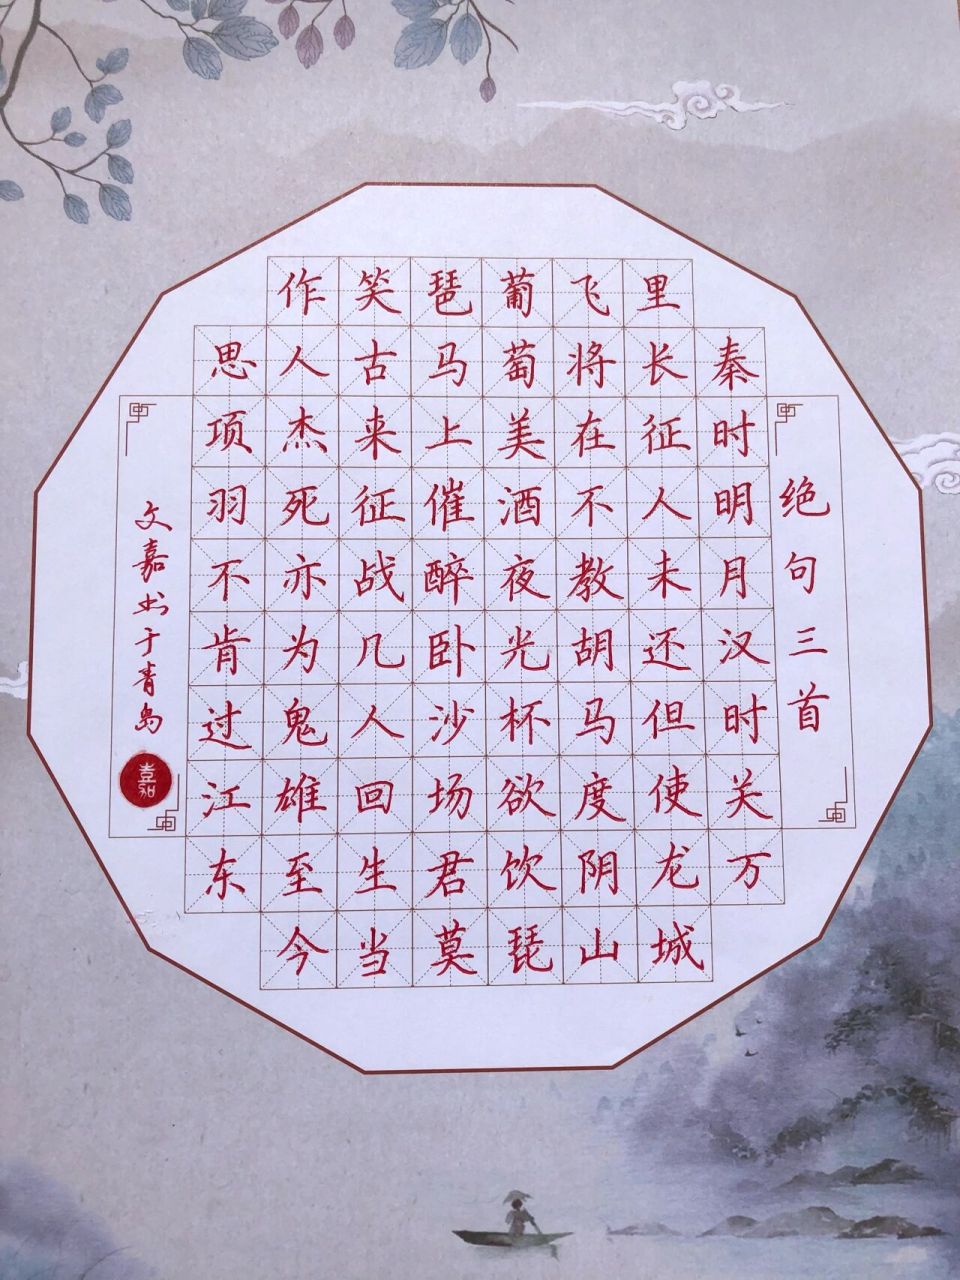 绝句三首
秦时明月汉时关万
里长征人未还但使龙城
飞将在不教胡马度阴山
葡萄美酒夜光杯欲饮琵
琶马上催醉卧沙场君莫
笑古来征战几人回生当
作人杰死亦为鬼雄至今
思项羽不肯过江东
文嘉书于青岛
嘉